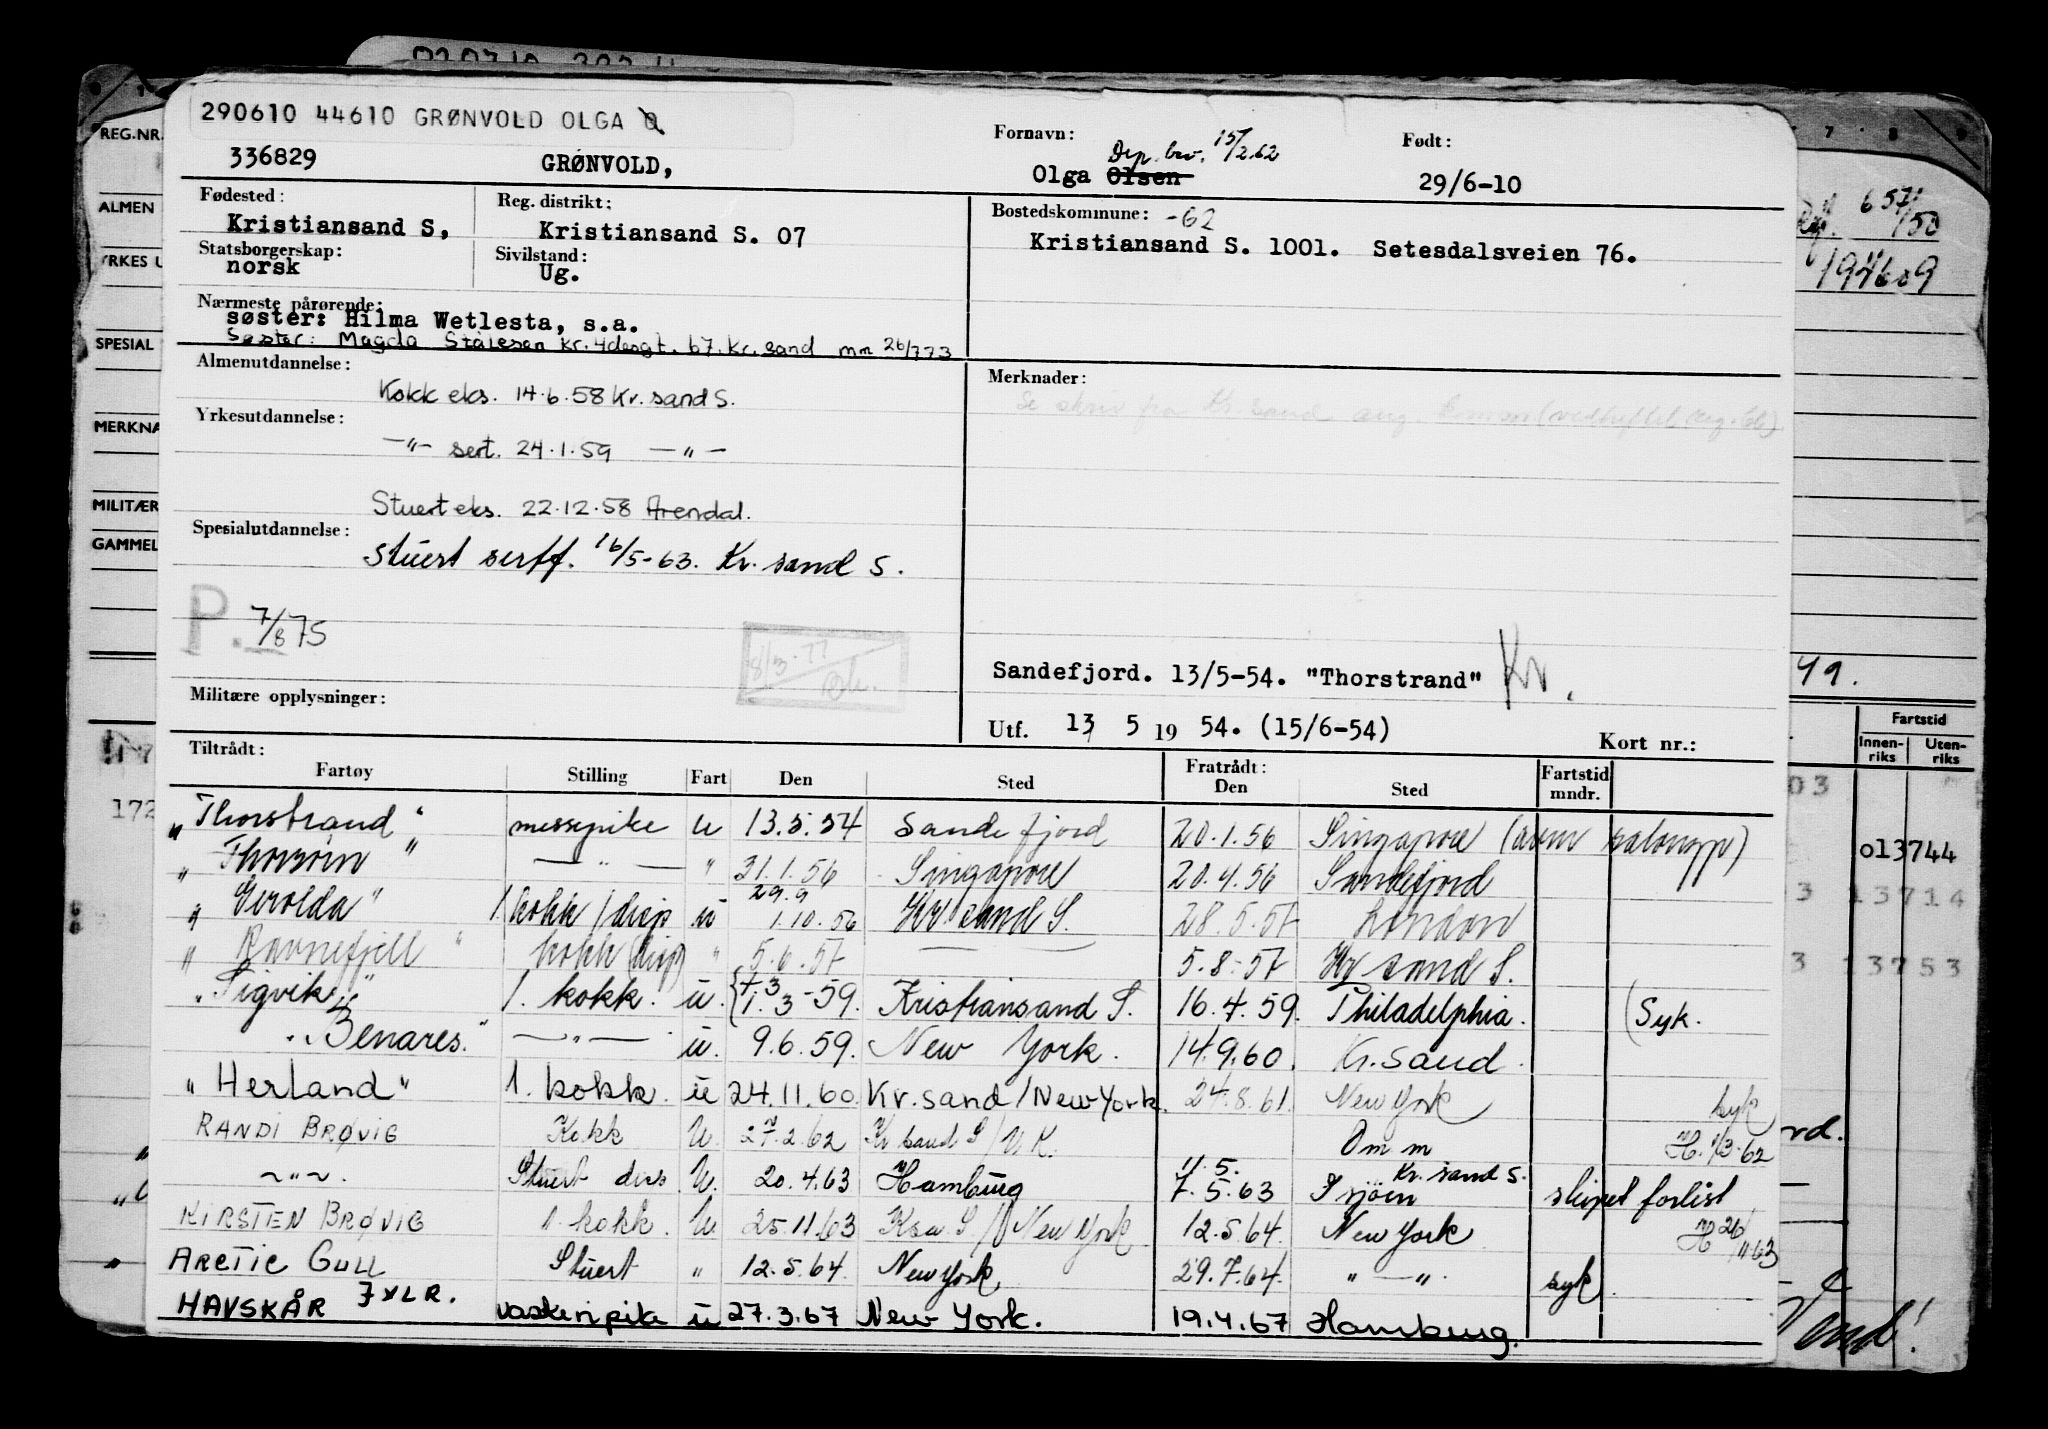 290610 44610 GRØNVOLD OLGA O
336829 GRØNVOLD,
Fornavn: Dep. brv. 15/2.62
Født:
Olga Olsen 29/6-10
Fødested: Reg. distrikt: Bostedskommune: -62
Kristiansand S, Kristiansand S. 07 Kristiansand S. 1001. Setesdalsveien 76.
Statsborgerskap: Sivilstand:
norsk Ug.
Nærmeste pårørende:
søster: Hilma Wetlesta, s.a.
Søster: Magda Stålesen Kr. 4 desgt. 67. Kr. sand mm 26/7 73
Almenutdannelse: Merknader:
Kokk eks. 14.6.58 Kr. sand S.
Yrkesutdannelse:
—"— sert. 24.1.59 —"—
Stuert eks. 22.12.58 Arendal.
Spesialutdannelse:
Stuert sertf. 16/5-63. Kr. sand S.
P. 7/8 75
8/3-77
Sandefjord. 13/5-54. "Thorstrand" Kr.
Militære opplysninger:
Utf. 13 5 19 54. (15/6-54) Kort nr.:
Tiltrådt: Fratrådt:
Fartøy Stilling Fart Den Sted Den Sted Fartstid mndr.
"Thorstrand" messepike u 13.5.54 Sandefjord 20.1.56 Singapore
" " —"— " 31.1.56 Singapore 20.4.56 Sandefjord
29.9
"Gerolda" 1. kokk/disp u 1.10.56 Kr. sand S. 28.5.57 London
"Ravnefjell" kokk (disp) " 5.6.57 — 5.8.57 Kr sand S.
"Sigvik" 1. kokk. u. 1.3-59. Kristiansand S. 16.4.59. Philadelphia. (Syk.
"Benares." —"— u. 9.6.59. New York. 14.9.60. Kr. sand.
"Herland" 1. kokk. u 24.11.60. Kr. sand/New York. 24.8.61. New York syk
RANDI BRØVIG Kokk U. 27.2.62 Kr sand S/U.K. Omm H. 1/3.62
~"~. Stuert disp U. 20.4.63 Hamburg 11.5. Kr. sand S.
7.5.63 I sjøen skipet forlist
KIRSTEN BRØVIG 1. kokk. U. 25.11.63 Ksa S/New York 12.5.64. New York H 26/11 63
ARCTIC GULL Stuert " 12.5.64. New York 29.7.64. "—". syk.
HAVSKÅR JXLR. vaskeripike u 27.3.67 New York. 19.4.67 Hamburg.
REG.NR.
ALMEN
YRKES U
SPESIAL
MERKNA
MILITÆR
GAMMEL
172
7 8 9
657/50
194609
49.
Fartstid
Innen-riks Uten-riks
03
013744
3 13714
3 13753
Vend!